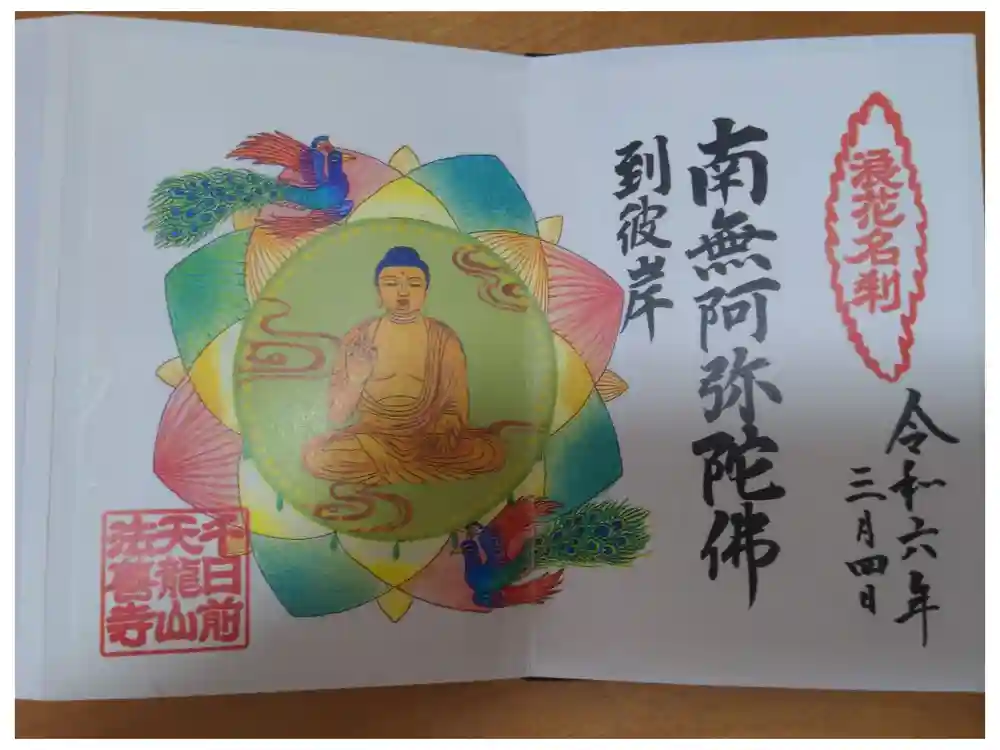 浪花名刹
令和六年
三月四日
南無阿弥陀佛
到彼岸
千日前
天龍山
法善寺